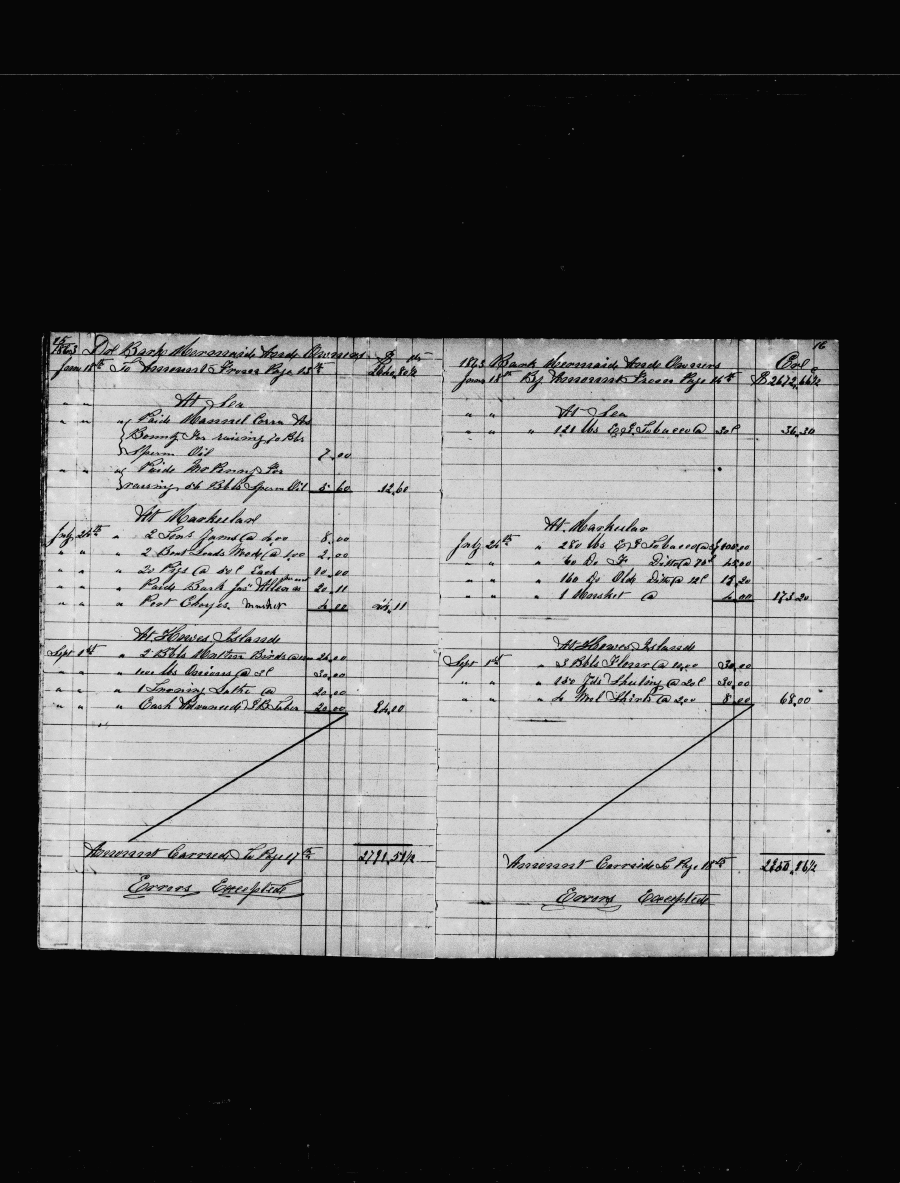 1863 Dr Bark Mermaid And Owners $ cts
June 18th To Amount From Page 15th 2640.80½
At Sea
" " " Paid Manuel Corra
Bounty For raising 70 Bbls
Sperm Oil 7.00
" " " Paid Penny For
raising 56 Bbls Sperm Oil 5.60 12.60
At
July 24th " 2 Tons Yams @ 4.00 8.00
" " " 2 @ 1.00 2.00
" " " 20 Pigs @ 50c Each 10.00
" " " Paid Bark Jas Allen 20.11
" " " Port Charges. Musket 4.00 44.11
At Howes Island
Sept 1st " 2 Bbls Mutton Birds @ 24.00
" " " 1000 lbs Onions @ 3c 30.00
" " " 1 Turning Lathe @ 20.00
" " " Cash Advanced J B Taber 20.00 94.00
Amount Carried To Page 17th 2791.51½
Errors Excepted
16
1863 Bark Mermaid And Owners Cr
June 18th By Amount From Page 16th $ 2672.66½
At Sea
" " " 121 lbs Tobacco @ 30c 36.30
At
July 24th " 280 lbs Tobacco @
" " " 60 Do Ditto @
" " " 160 Do Old Ditto @ 12c 19.20
" " " 1 Musket @ 4.00 173.20
At Howes Island
Sept 1st " 3 Bbls Flour @ 10.00 30.00
" " " 150 Yds @ 20c 30.00
" " " 4 Shirts @ 2.00 8.00 68.00
Amount Carried To Page 18th
Errors Excepted